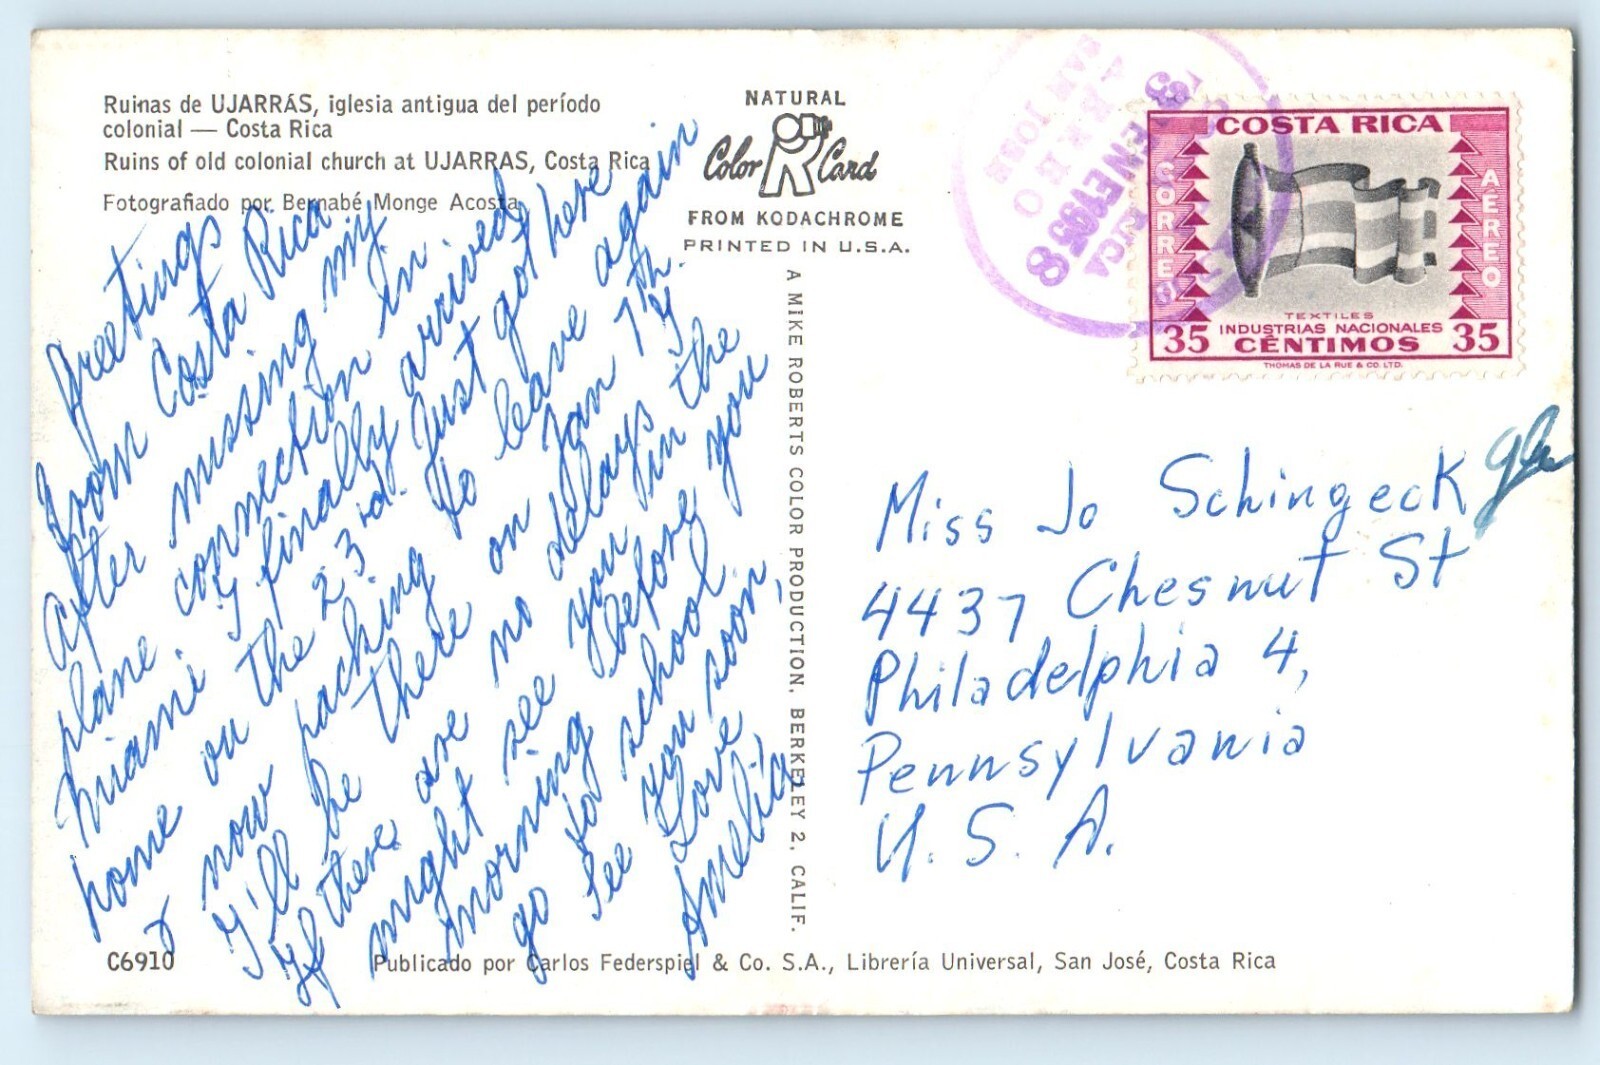 Ruinas de UJARRÁS, iglesia antigua del período
colonial — Costa Rica
Ruins of old colonial church at UJARRAS, Costa Rica
Fotografiado por Bernabé Monge Acosta
NATURAL
Color Card
FROM KODACHROME
PRINTED IN U.S.A.
A MIKE ROBERTS COLOR PRODUCTION, BERKELEY 2, CALIF.
COSTA RICA
CORREO
AEREO
TEXTILES
INDUSTRIAS NACIONALES
35 CÉNTIMOS 35
THOMAS DE LA RUE & CO. LTD.
SAN JOSE
3 ENE 1958
RICA
Greetings
from Costa Rica
After missing my
plane connection in
Miami. I finally arrived
home on the 23rd. Just got here
& now packing to leave again
I'll be there on Jan 7th.
If there are no delays by
might see you in the
morning before you
go to school
See you soon,
Love
Amelia
Miss Jo Schingeck
4437 Chesnut St
Philadelphia 4,
Pennsylvania
U. S. A.
C6910
Publicado por Carlos Federspiel & Co. S.A., Librería Universal, San José, Costa Rica